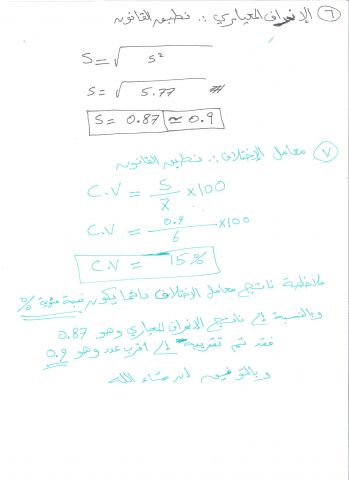 ٦ الإنحراف المعياري ∴ نطبق القانون
S = √ S²
S = √ 5.77
S = 0.87 ≃ 0.9
٧ معامل الإختلاف ∴ نطبق القانون
C.V = S / X̄ ×100
C.V = 0.9 / 6 ×100
C.V = 15%
ملاحظة ناتج معامل الاختلاف دائما يكون نسبة مئوية %
وبالنسبة إلى ناتج الإنحراف المعياري وهو 0.87
فقد تم تقريبه إلى أقرب عدد وهو 0.9
وبالتوفيق إن شاء الله